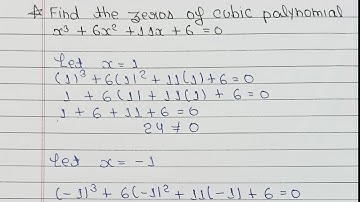 ☆ Find the zeros of cubic palynomial
x³ + 6x² + 11x + 6 = 0
Let x = 1
(1)³ + 6(1)² + 11(1) + 6 = 0
1 + 6(1) + 11(1) + 6 = 0
1 + 6 + 11 + 6 = 0
24 ≠ 0
Let x = -1
(-1)³ + 6(-1)² + 11(-1) + 6 = 0